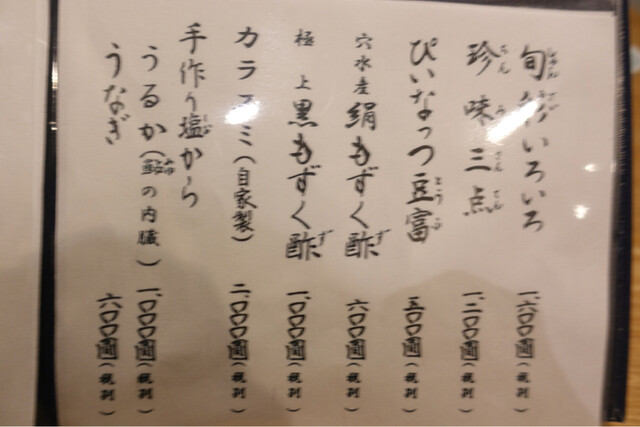 旬いろいろ 一、六〇〇圓(税別)
珍味三点 一、二〇〇圓(税別)
ぴいなっつ豆富 五〇〇圓(税別)
穴水産 絹もずく酢 六〇〇圓(税別)
極上 黒もずく酢 一、〇〇〇圓(税別)
カラスミ(自家製) 二、〇〇〇圓(税別)
手作り塩から
うるか(鮎の内臓) 一、〇〇〇圓(税別)
うなぎ 六〇〇圓(税別)